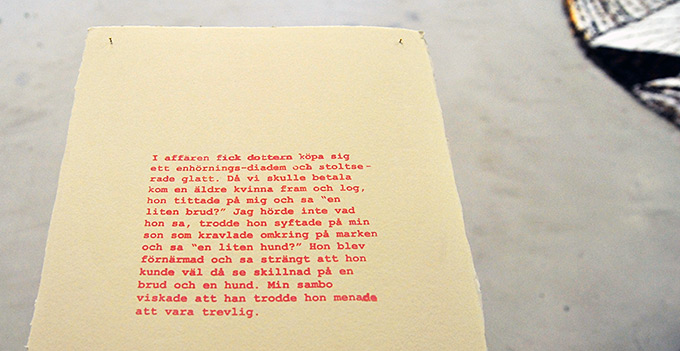 I affären fick dottern köpa sig
ett enhörnings-diadem och stoltse-
rade glatt. Då vi skulle betala
kom en äldre kvinna fram och log,
hon tittade på mig och sa "en
liten brud?" Jag hörde inte vad
hon sa, trodde hon syftade på min
son som kravlade omkring på marken
och sa "en liten hund?" Hon blev
förnärmad och sa strängt att hon
kunde väl då se skillnad på en
brud och en hund. Min sambo
viskade att han trodde hon menade
att vara trevlig.